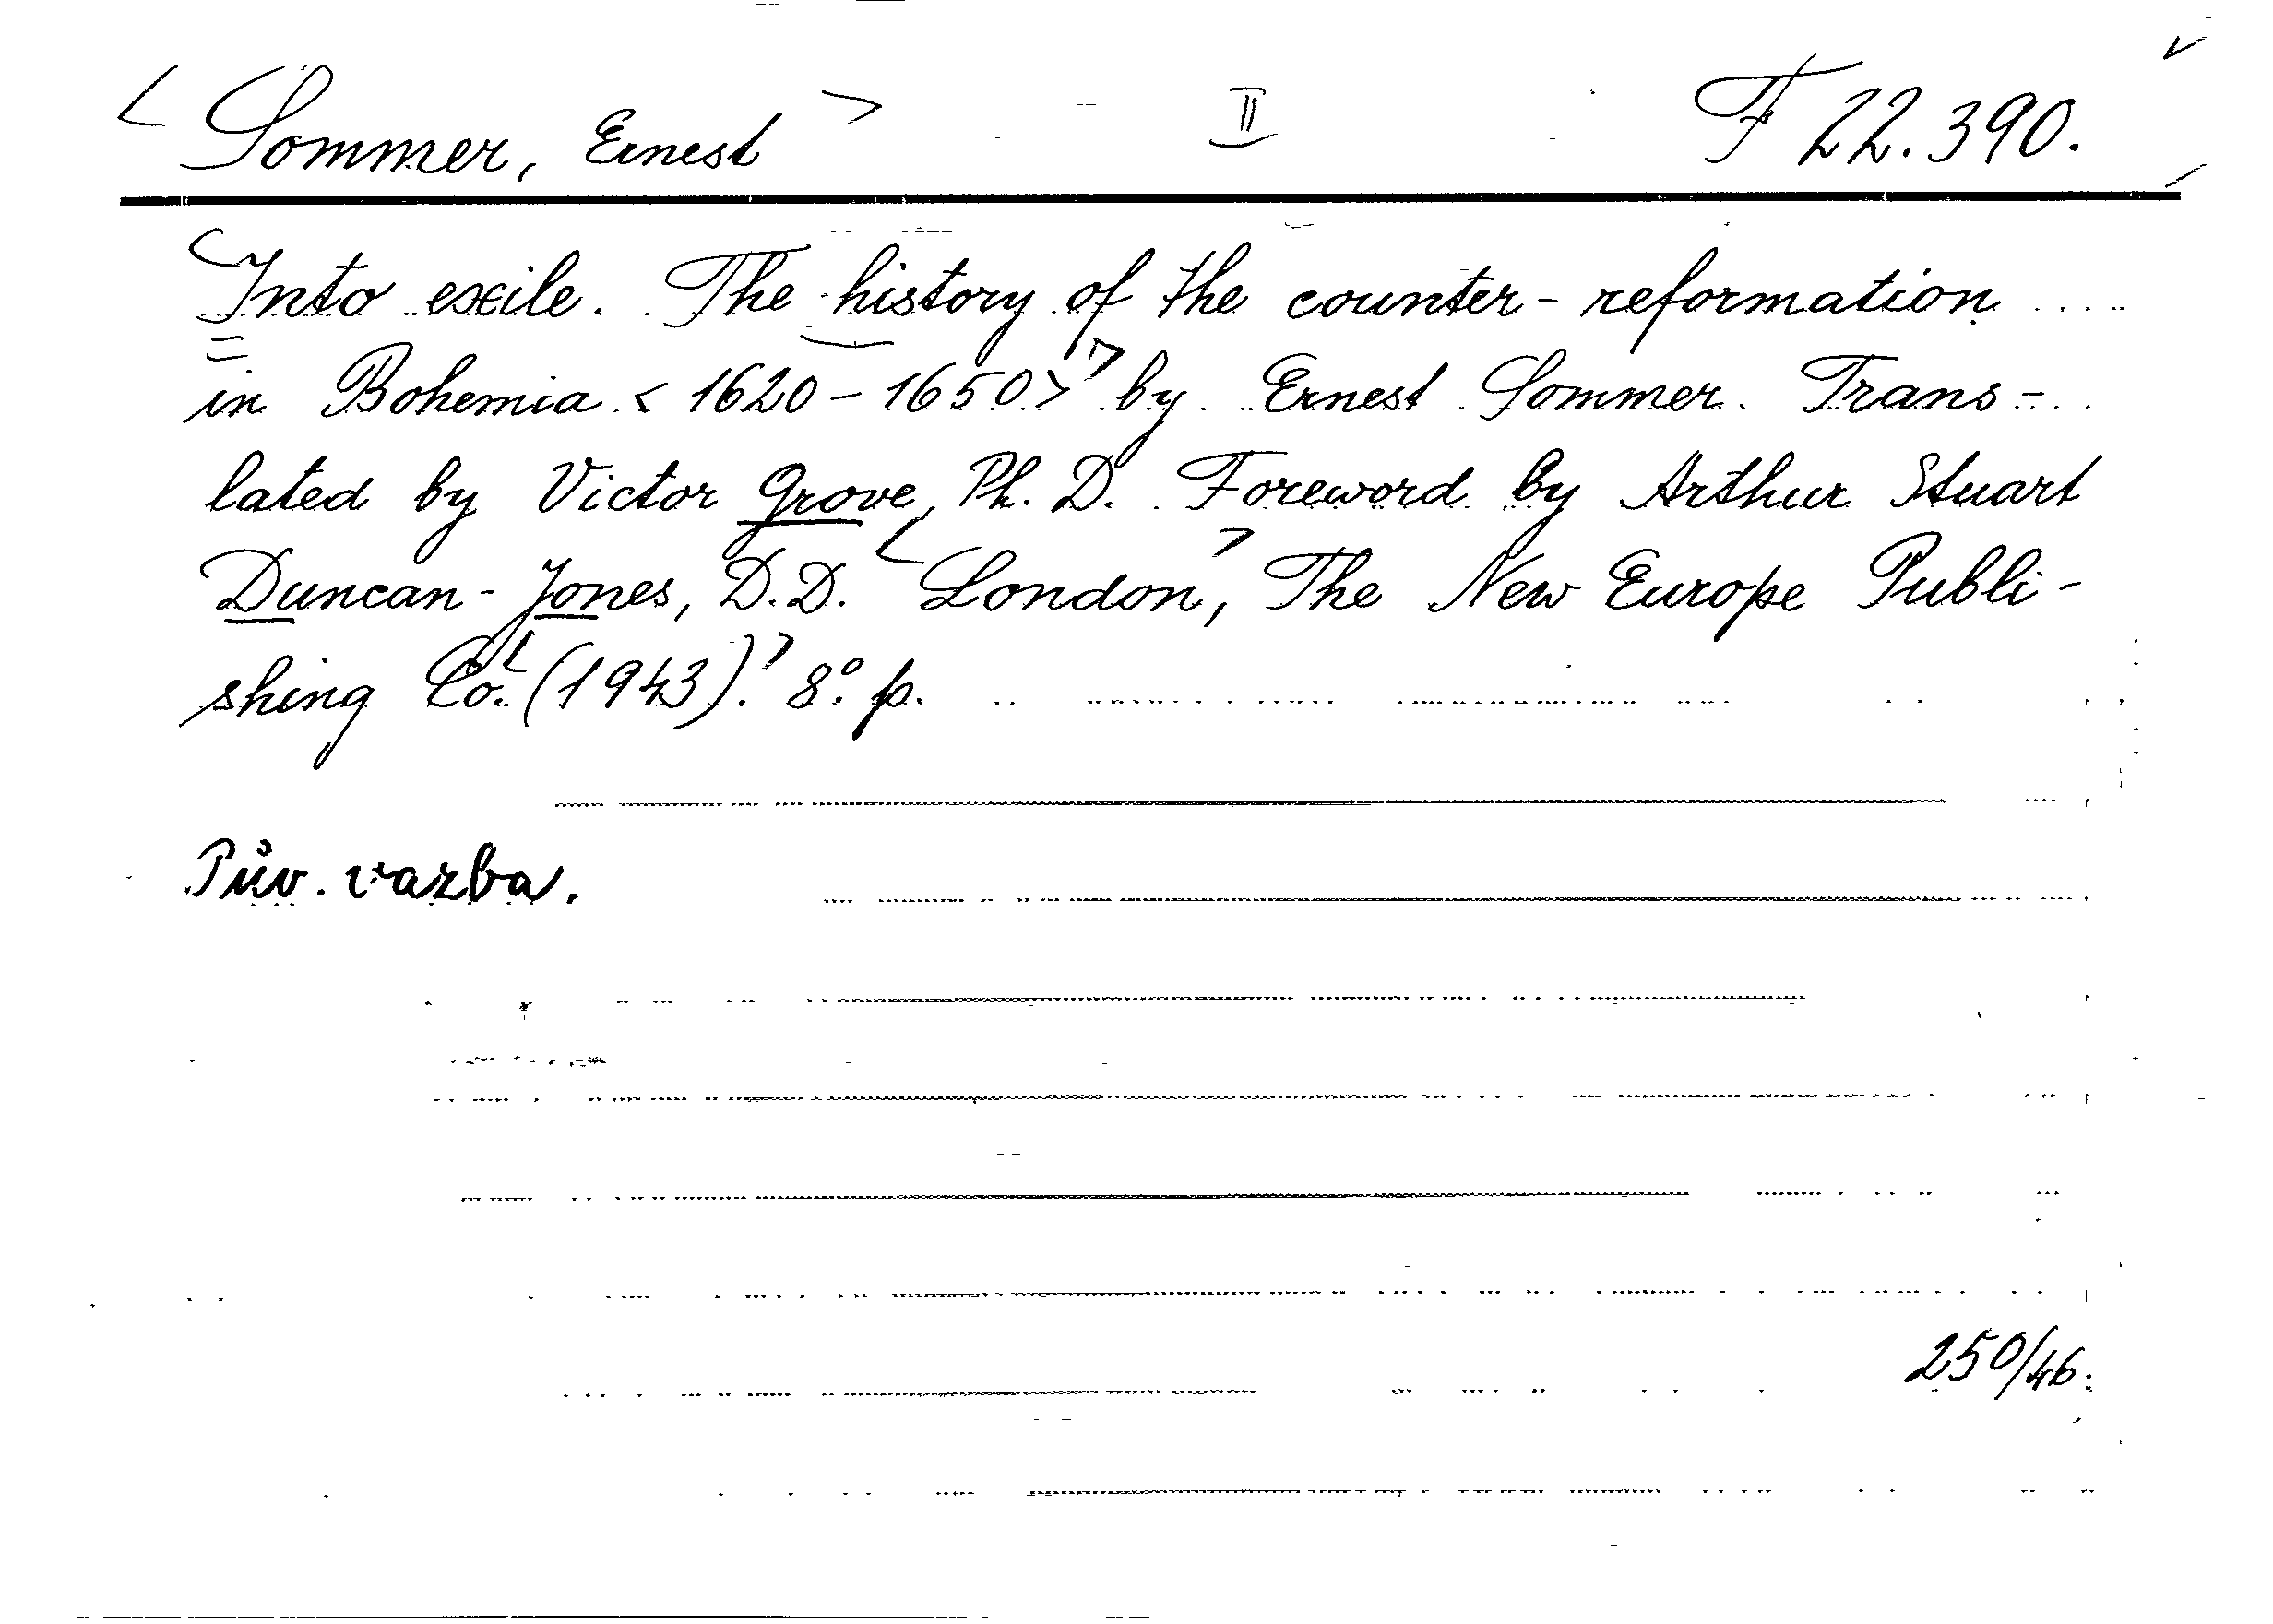 < Sommer, Ernest > II F 22.390.
<Into exile. The history of the counter-reformation
in Bohemia <1620-1650>> by Ernest Sommer. Trans-
lated by Victor Grove, Ph. D. Foreword by Arthur Stuart
Duncan-Jones, D.D. <London>, The New Europe Publi-
shing Co. <(1943).> 8°. p.
Pův. vazba.
250/46.